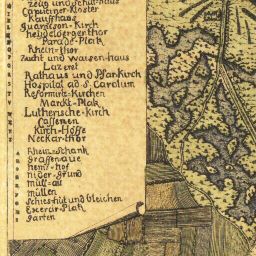 zeug und schul-haus
Capuciner-Kloster
Kauffhaus
Guarnison-Kirch
heydelberger thor
Parade-Platz
Rhein-thor
Zucht und Waisen-haus
Lazeret
Rathaus und Pfarkirch
Hospital ad S. Carolum
Reformirte-Kirchen
Markt-Platz
Lutherische-Kirch
Casernen
Kirch-Höffe
Neckar-thor
Rhein-Schantz
graffenaue
hems-hof
niger-grund
mühl-au
müllen
Schies-hüt und bleichen
Exercir-Platz
Garten